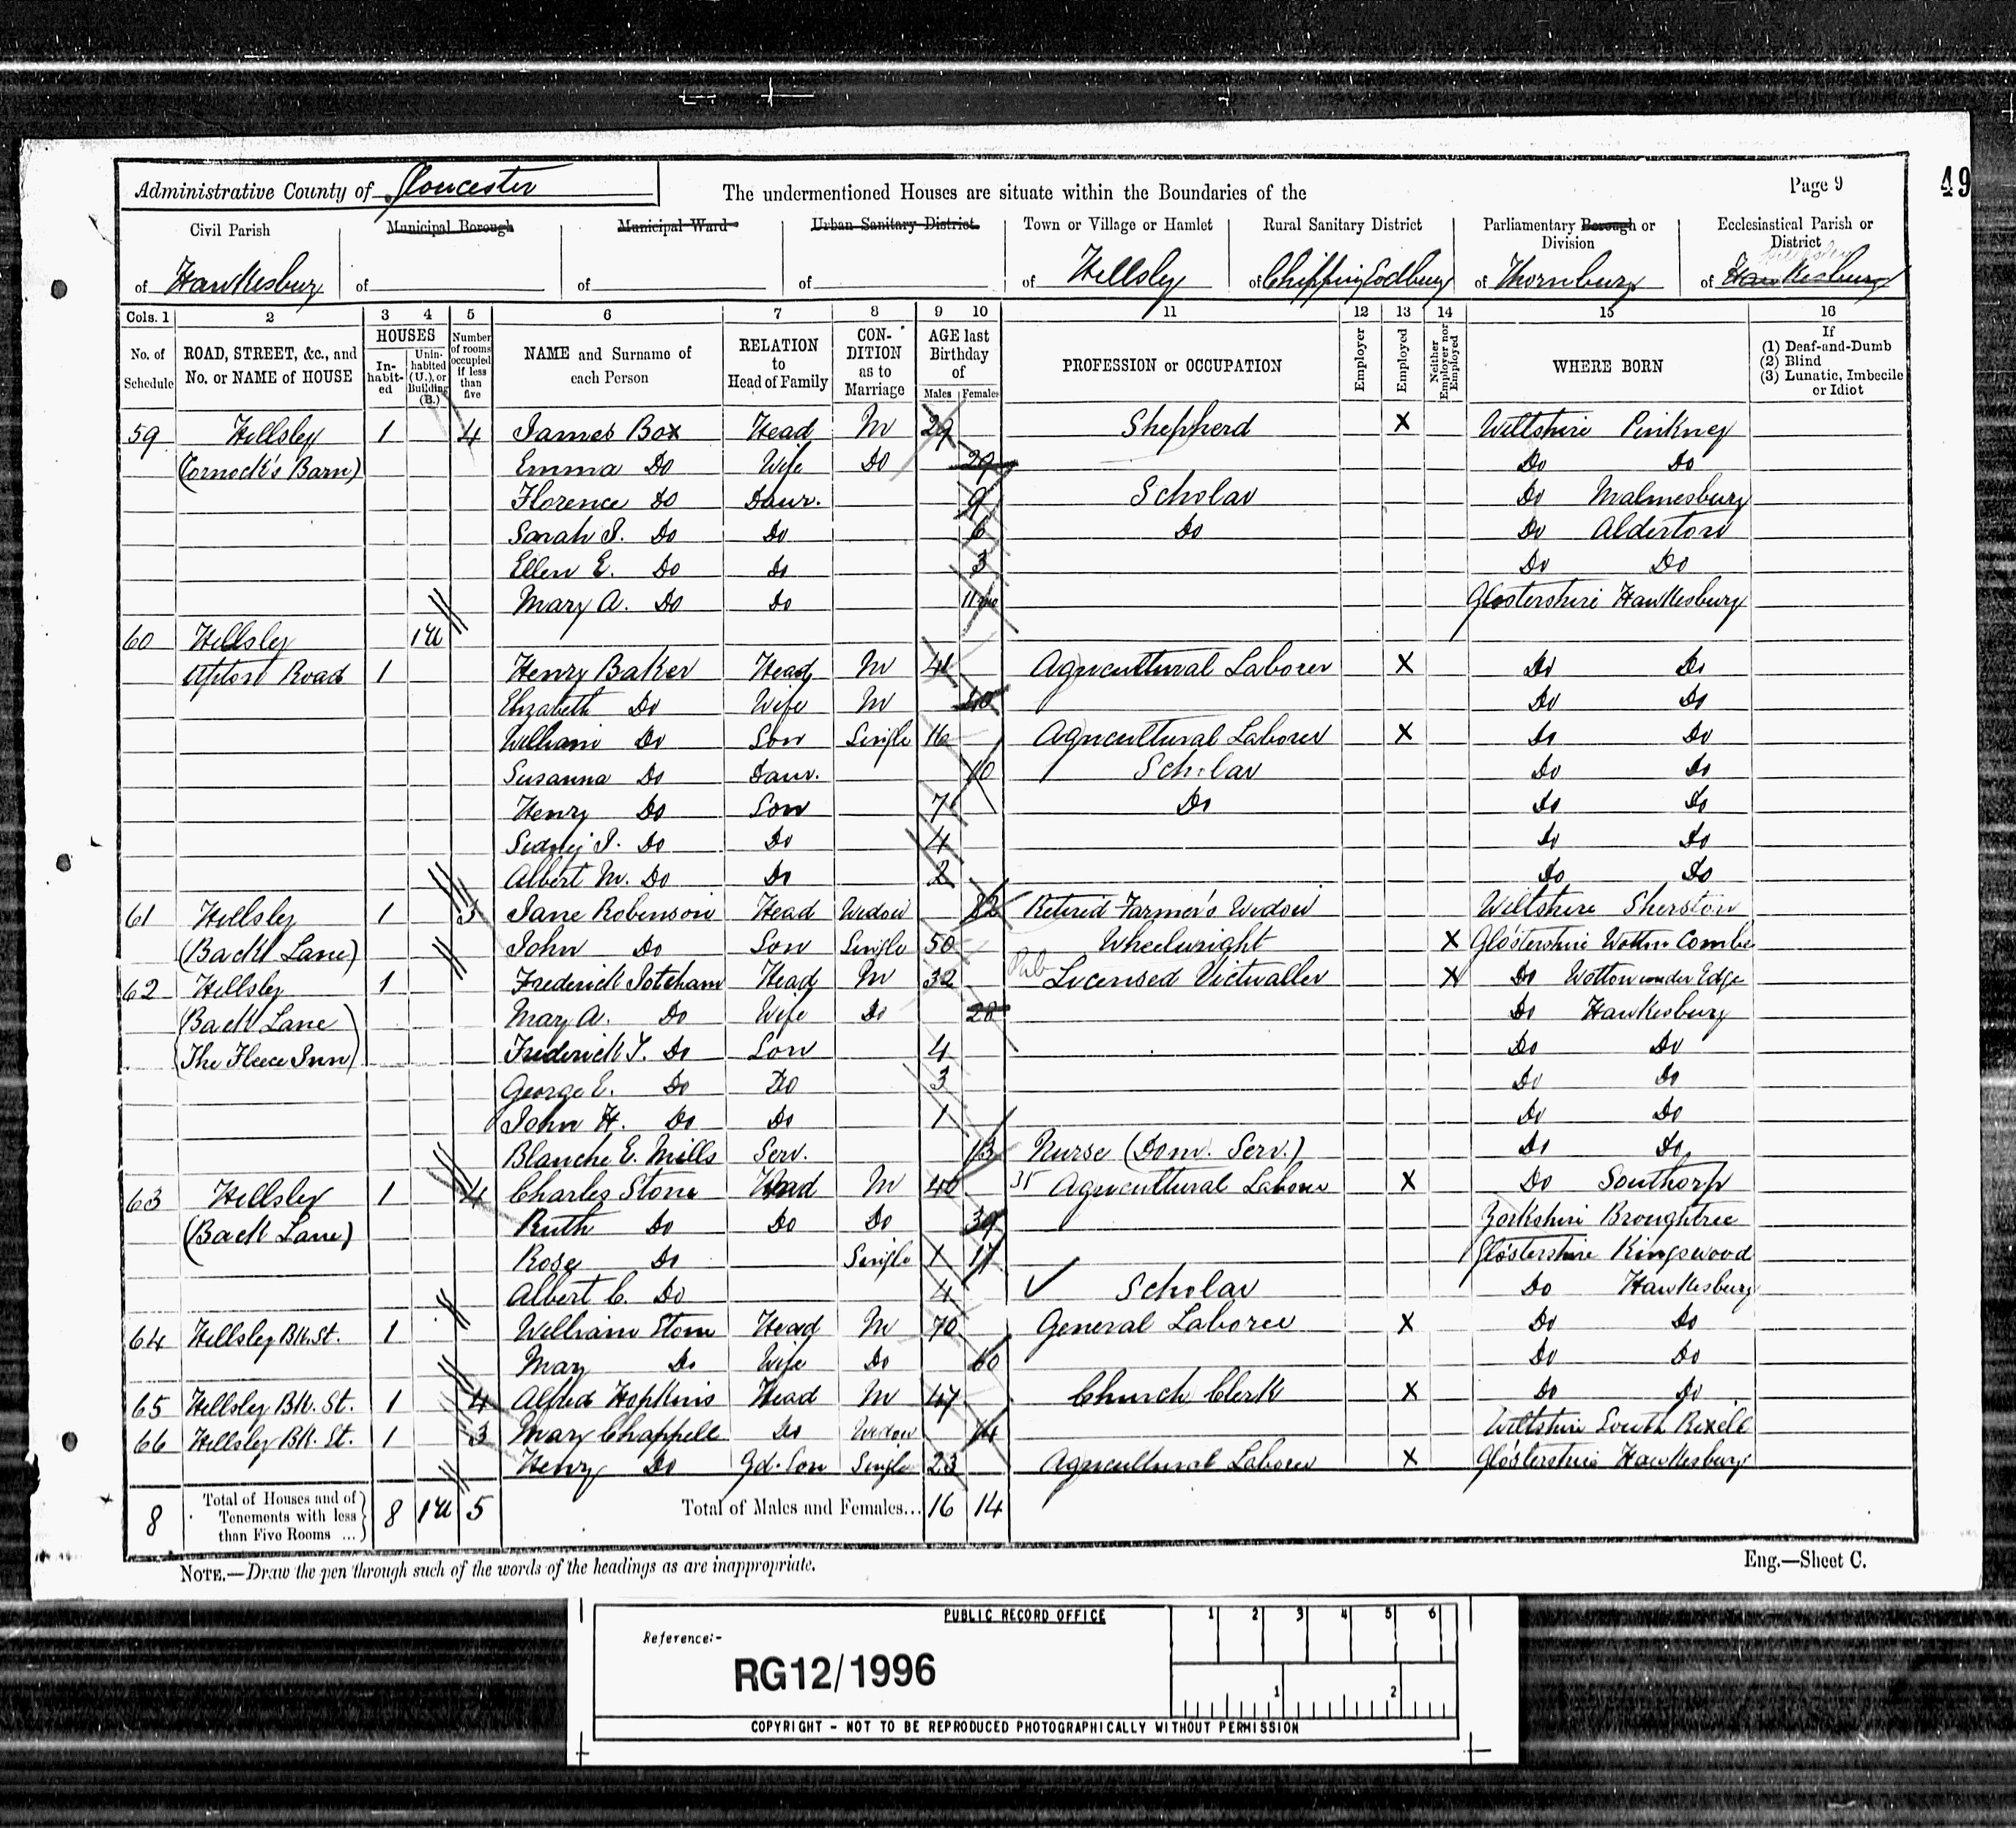 Page 9
49
Administrative County of Gloucester
The undermentioned Houses are situate within the Boundaries of the
Civil Parish of Hawkesbury
Municipal Borough of
Municipal Ward of
Urban Sanitary District of
Town or Village or Hamlet of Hillsley
Rural Sanitary District of Chipping Sodbury
Parliamentary Borough or Division of Thornbury
Ecclesiastical Parish or District of Hawkesbury
Cols. 1 2 3 4 5 6 7 8 9 10 11 12 13 14 15 16
No. of Schedule
ROAD, STREET, &c., and No. or NAME of HOUSE
HOUSES
Inhabited
Uninhabited (U.), or Building (B.)
Number of rooms occupied if less than five
NAME and Surname of each Person
RELATION to Head of Family
CONDITION as to Marriage
AGE last Birthday of
Males Females
PROFESSION or OCCUPATION
Employer
Employed
Neither Employer nor Employed
WHERE BORN
If
(1) Deaf-and-Dumb
(2) Blind
(3) Lunatic, Imbecile or Idiot
59 Hillsley 1 4 James Box Head M 29 Shepherd X Wiltshire Pinkney
(Cornock's Barn) Emma Do Wife Do 29 Do Do
Florence Do Daur. 9 Scholar Do Malmesbury
Sarah J. Do Do 6 Do Do Alderton
Ellen E. Do Do 3 Do Do
Mary A. Do Do 11mo Glostershire Hawkesbury
60 Hillsley 1U
Upton Road 1 Henry Baker Head M 41 Agricultural Laborer X Do Do
Elizabeth Do Wife M Do Do
William Do Son Single 16 Agricultural Laborer X Do Do
Susanna Do Daur. 10 Scholar Do Do
Henry Do Son 7 Do Do Do
Sidney J. Do Do 4 Do Do
Albert M. Do Do 2 Do Do
61 Hillsley 1 3 Jane Robinson Head Widow 82 Retired Farmer's Widow Wiltshire Sherston
(Back Lane) John Do Son Single 50 Wheelwright X Glostershire Wotton Combe
62 Hillsley 1 Frederick Head M 32 Pub Licensed Victualler X Do Wotton under Edge
(Back Lane) Mary A. Do Wife Do 28 Do Hawkesbury
(The Fleece Inn) Frederick T. Do Son 4 Do Do
George E. Do Do 3 Do Do
John H. Do Do 1 Do Do
Blanche E. Mills Serv. 13 Nurse (Dom. Serv.) Do Do
63 Hillsley 1 4 Charles Stone Head M 40 35 Agricultural Laborer X Do Southorp
(Back Lane) Ruth Do Do Do 39 Yorkshire Broughtree
Rose Do Single 1 17 Glostershire Kingswood
Albert C. Do 4 ✓ Scholar Do Hawkesbury
64 Hillsley Bk. St. 1 William Stone Head M 70 General Laborer X Do Do
Mary Do Wife Do 60 Do Do
65 Hillsley Bk. St. 1 4 Alfred Hopkins Head M 47 Church Clerk X Do Do
66 Hillsley Bk. St. 1 3 Mary Chappell Do Widow 74 Wiltshire South
Henry Do Gd. Son Single 23 Agricultural Laborer X Glostershire Hawkesbury
8 Total of Houses and of Tenements with less than Five Rooms ... 8 1U 5 Total of Males and Females... 16 14
NOTE.—Draw the pen through such of the words of the headings as are inappropriate.
Eng.—Sheet C.
PUBLIC RECORD OFFICE
1 2 3 4 5 6
Reference:-
RG12/1996
1 2
COPYRIGHT - NOT TO BE REPRODUCED PHOTOGRAPHICALLY WITHOUT PERMISSION